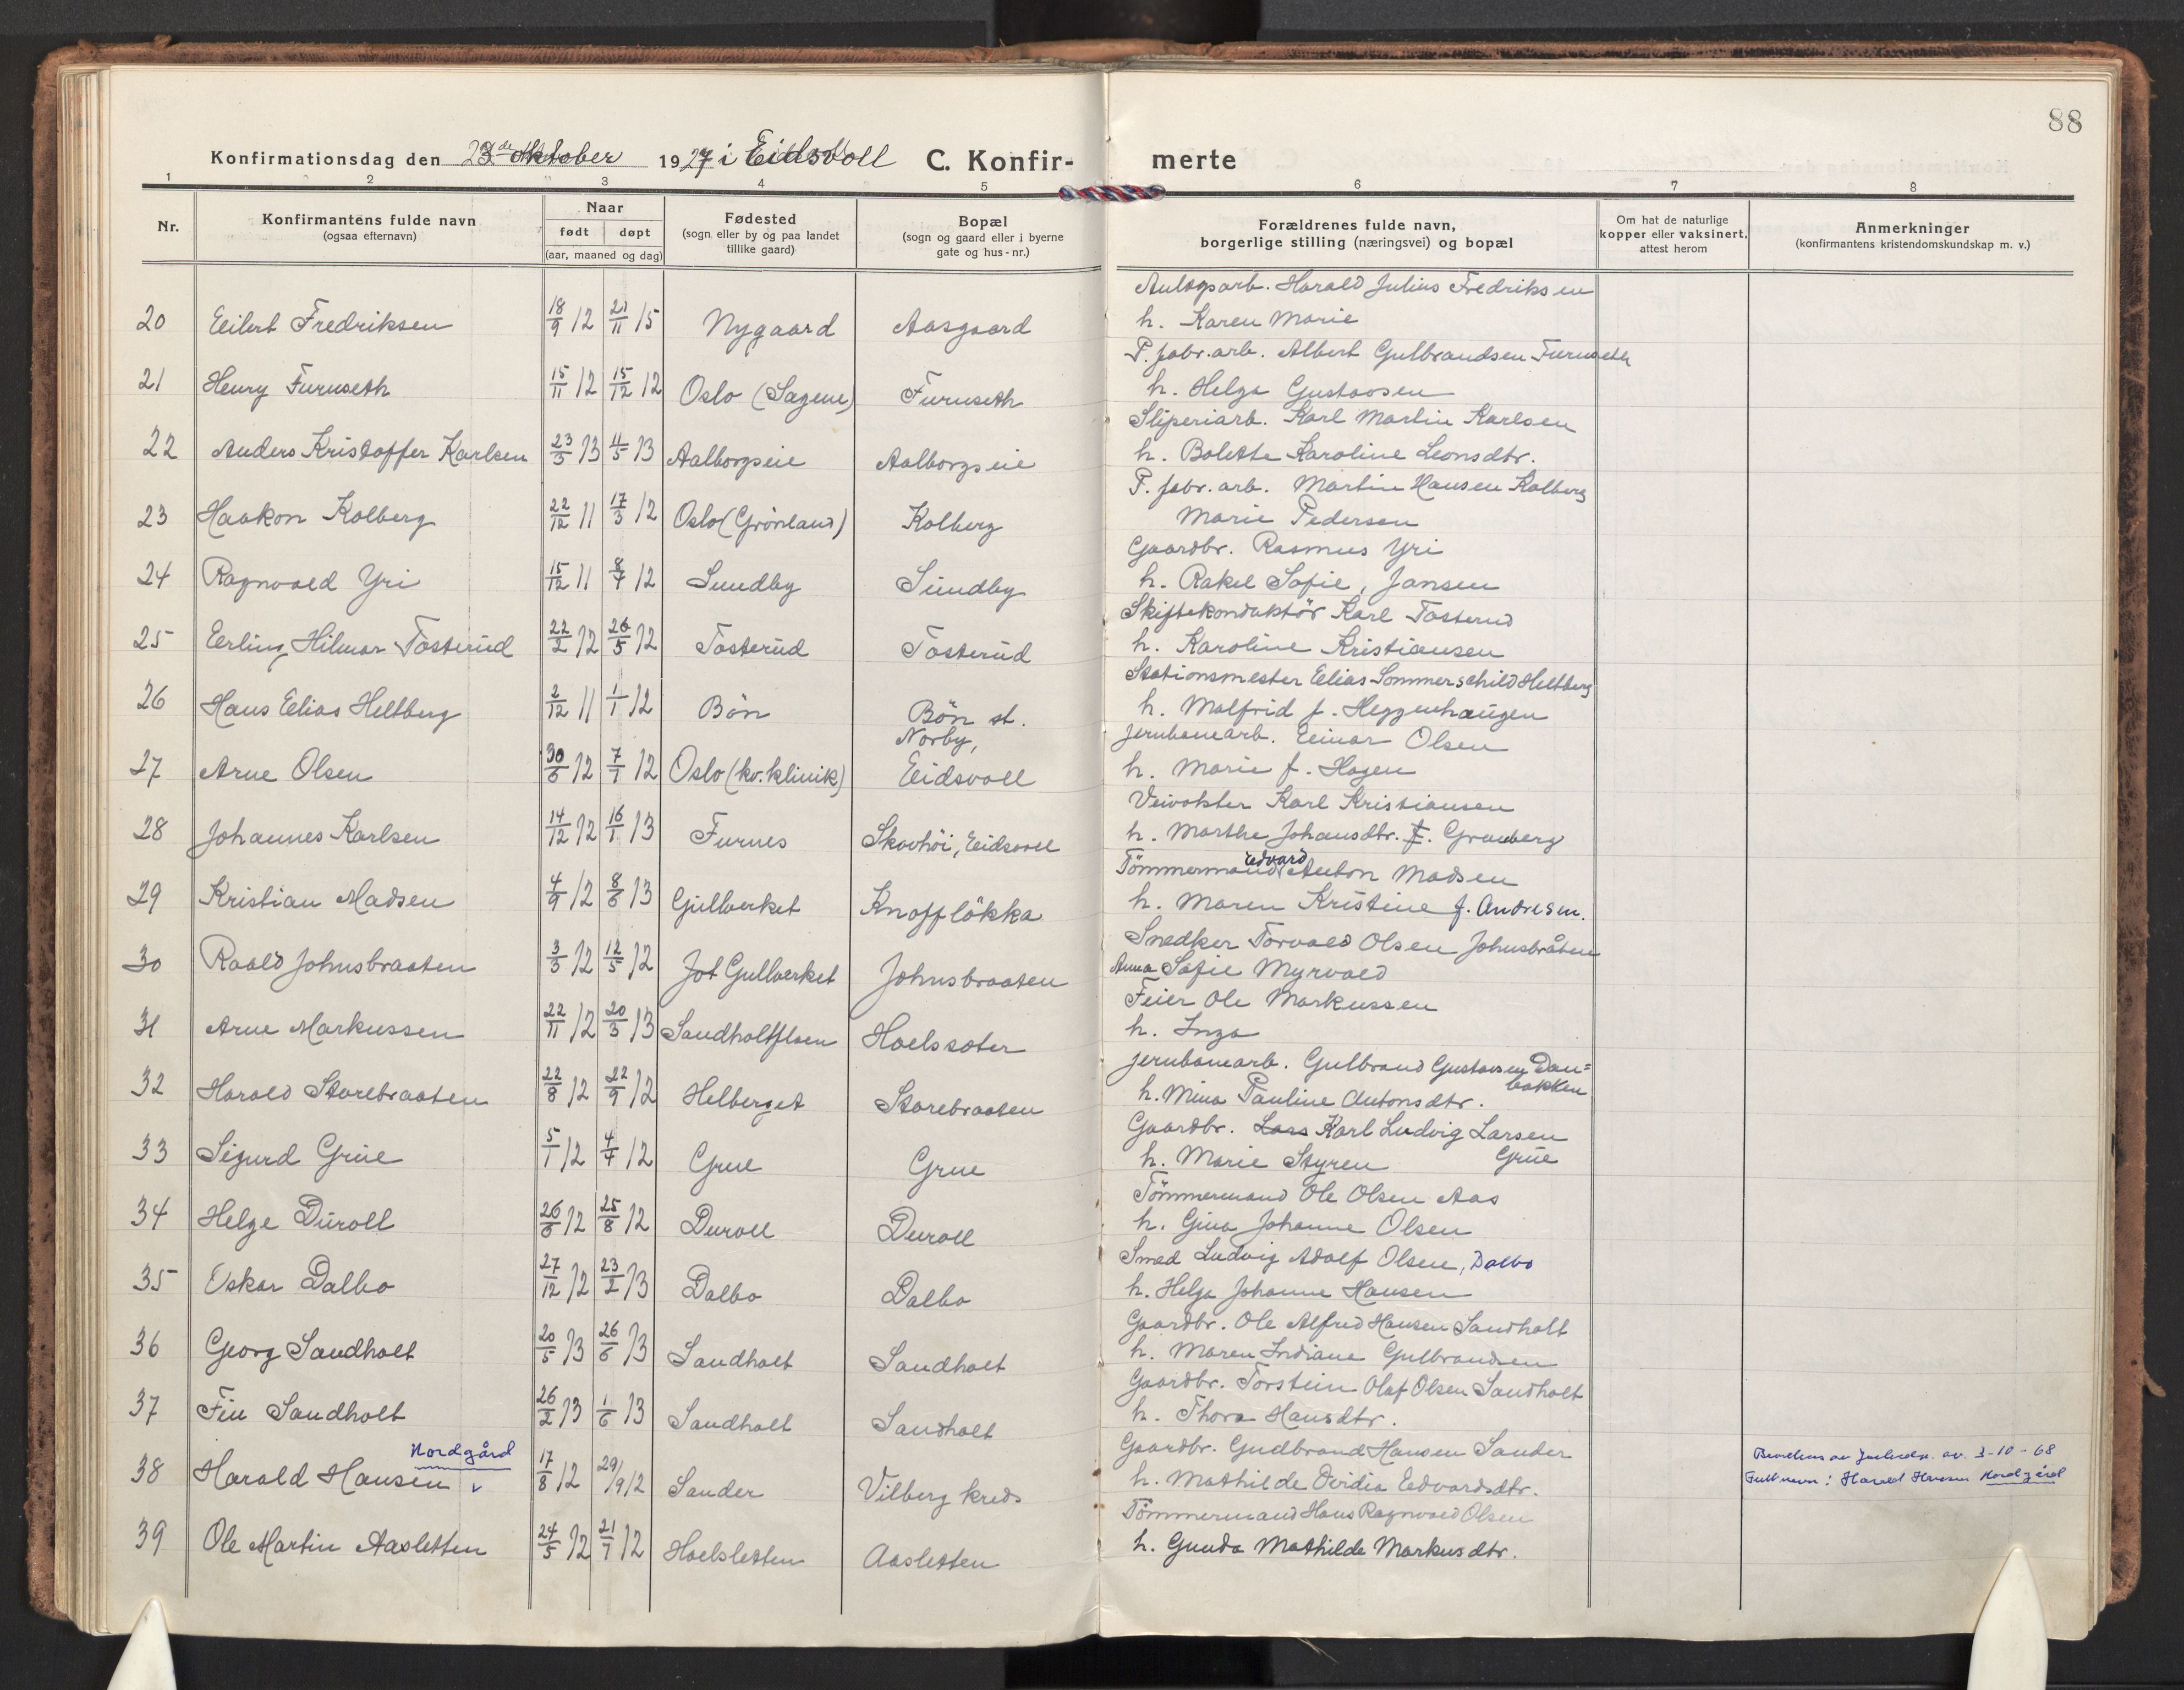 88
Konfirmationsdag den 23de Oktober 1927 i Eidsvoll C. Konfir- merte
1 2 3 4 5 6 7 8
Nr.
Konfirmantens fulde navn
(ogsaa efternavn)
Naar
født døpt
(aar, maaned og dag)
Fødested
(sogn eller by og paa landet
tillike gaard)
Bopæl
(sogn og gaard eller i byerne
gate og hus-nr.)
Forældrenes fulde navn,
borgerlige stilling (næringsvei) og bopæl
Om hat de naturlige
kopper eller vaksinert,
attest herom
Anmerkninger
(konfirmantens kristendomskundskap m. v.)
Anlægsarb. Harald Julius Fredriksen
20 Eilert Fredriksen 18/9 12 21/11 15 Nygaard Aasgaard h. Karen Marie
P. fabr. arb. Albert Gulbrandsen Furuseth
21 Henry Furuseth 15/11 12 15/12 12 Oslo (Sagene) Furuseth h. Helga Gustavsen
Sliperiarb. Karl Martin Karlsen
22 Anders Kristoffer Karlsen 23/3 13 11/5 13 Aalborgseie Aalborgseie h. Bolette Karoline Leonsdtr.
P. fabr. arb. Martin Hansen Kolberg
23 Haakon Kolberg 22/12 11 17/3 12 Oslo (Grönland) Kolberg Marie Pedersen
Gaardbr. Rasmus Yri
24 Ragnvald Yri 15/12 11 8/4 12 Sundby Sundby h. Rakel Sofie, Jansen
Skiftekonduktör Karl Tosterud
25 Erling Hilmar Tosterud 22/2 12 26/5 12 Tosterud Tosterud h. Karoline Kristiansen
Stationsmester Elias Sommerschild Heltberg
26 Hans Elias Heltberg 2/12 11 1/1 12 Bön Bön st. h. Malfrid f. Heggenhaugen
Norby, Jernbanearb. Einar Olsen
27 Arne Olsen 30/6 12 7/7 12 Oslo (kv. klinik) Eidsvoll h. Marie f. Hagen
Veivokter Karl Kristiansen
28 Johannes Karlsen 14/12 12 16/1 13 Furnes Skovhöi, Eidsvoll h. Marthe Johansdtr. f. Granberg
Tömmermand Edvard Anton Madsen
29 Kristian Madsen 4/9 12 8/6 13 Gullverket Knoffløkka h. Maren Kristine f. Andresen.
Snedker Torvald Olsen Johnsbråten
30 Roald Johnsbraaten 3/3 12 12/5 12 Jøt Gullverket Johnsbraaten Anna Sofie Myrvold
Feier Ole Markussen
31 Arne Markussen 22/11 12 20/3 13 Sandholtfloen Hoelsæter h. Inga
Jernbanearb. Gulbrand Gustavsen Dan=
bakken
32 Harald Storebraaten 22/8 12 22/9 12 Helberget Storebraaten h. Mina Pauline Antonsdtr.
Gaardbr. Lars Karl Ludvig Larsen
33 Sigurd Grue 5/1 12 4/4 12 Grue Grue h. Marie Styren Grue
Tömmermand Ole Olsen Aas
34 Helge Duroll 26/6 12 25/8 12 Duroll Duroll h. Gina Johanne Olsen
Smed Ludvig Adolf Olsen, Dalbo
35 Oskar Dalbo 27/12 12 23/2 13 Dalbo Dalbo h. Helga Johanne Hansen
Gaardbr. Ole Alfred Hansen Sandholt
36 Georg Sandholt 20/5 13 26/6 13 Sandholt Sandholt h. Maren Indiane Gulbrandsen
Gaardbr. Torstein Olaf Olsen Sandholt
37 Fin Sandholt 26/2 13 1/6 13 Sandholt Sandholt h. Thora Hansdtr.
Nordgård Gaardbr. Gudbrand Hansen Sander 3-10-68
38 Harald Hansen 17/8 12 29/9 12 Sander Vilberg kreds h. Mathilde Ovidia Edvardsdtr. Fullt navn: Harald Hansen Nordgård
Tömmermand Hans Ragnvald Olsen
39 Ole Martin Aasletten 24/5 12 21/7 12 Hoelsletten Aasletten h. Gunda Mathilde Markusdtr.